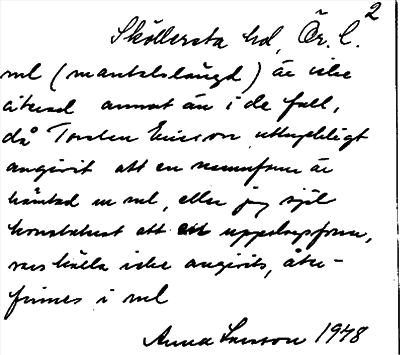 Sköllersta hd, Ör. l. 2
ml (mantalslängd) är icke
citerad annat än i de fall,
då Torsten Ericsson uttryckligt
angivit att en namnform är
hämtad ur ml, eller jag själ
konstaterat att en uppslagsform,
vars källa icke angivits, åter-
finnes i ml
Anna Larsson 1948